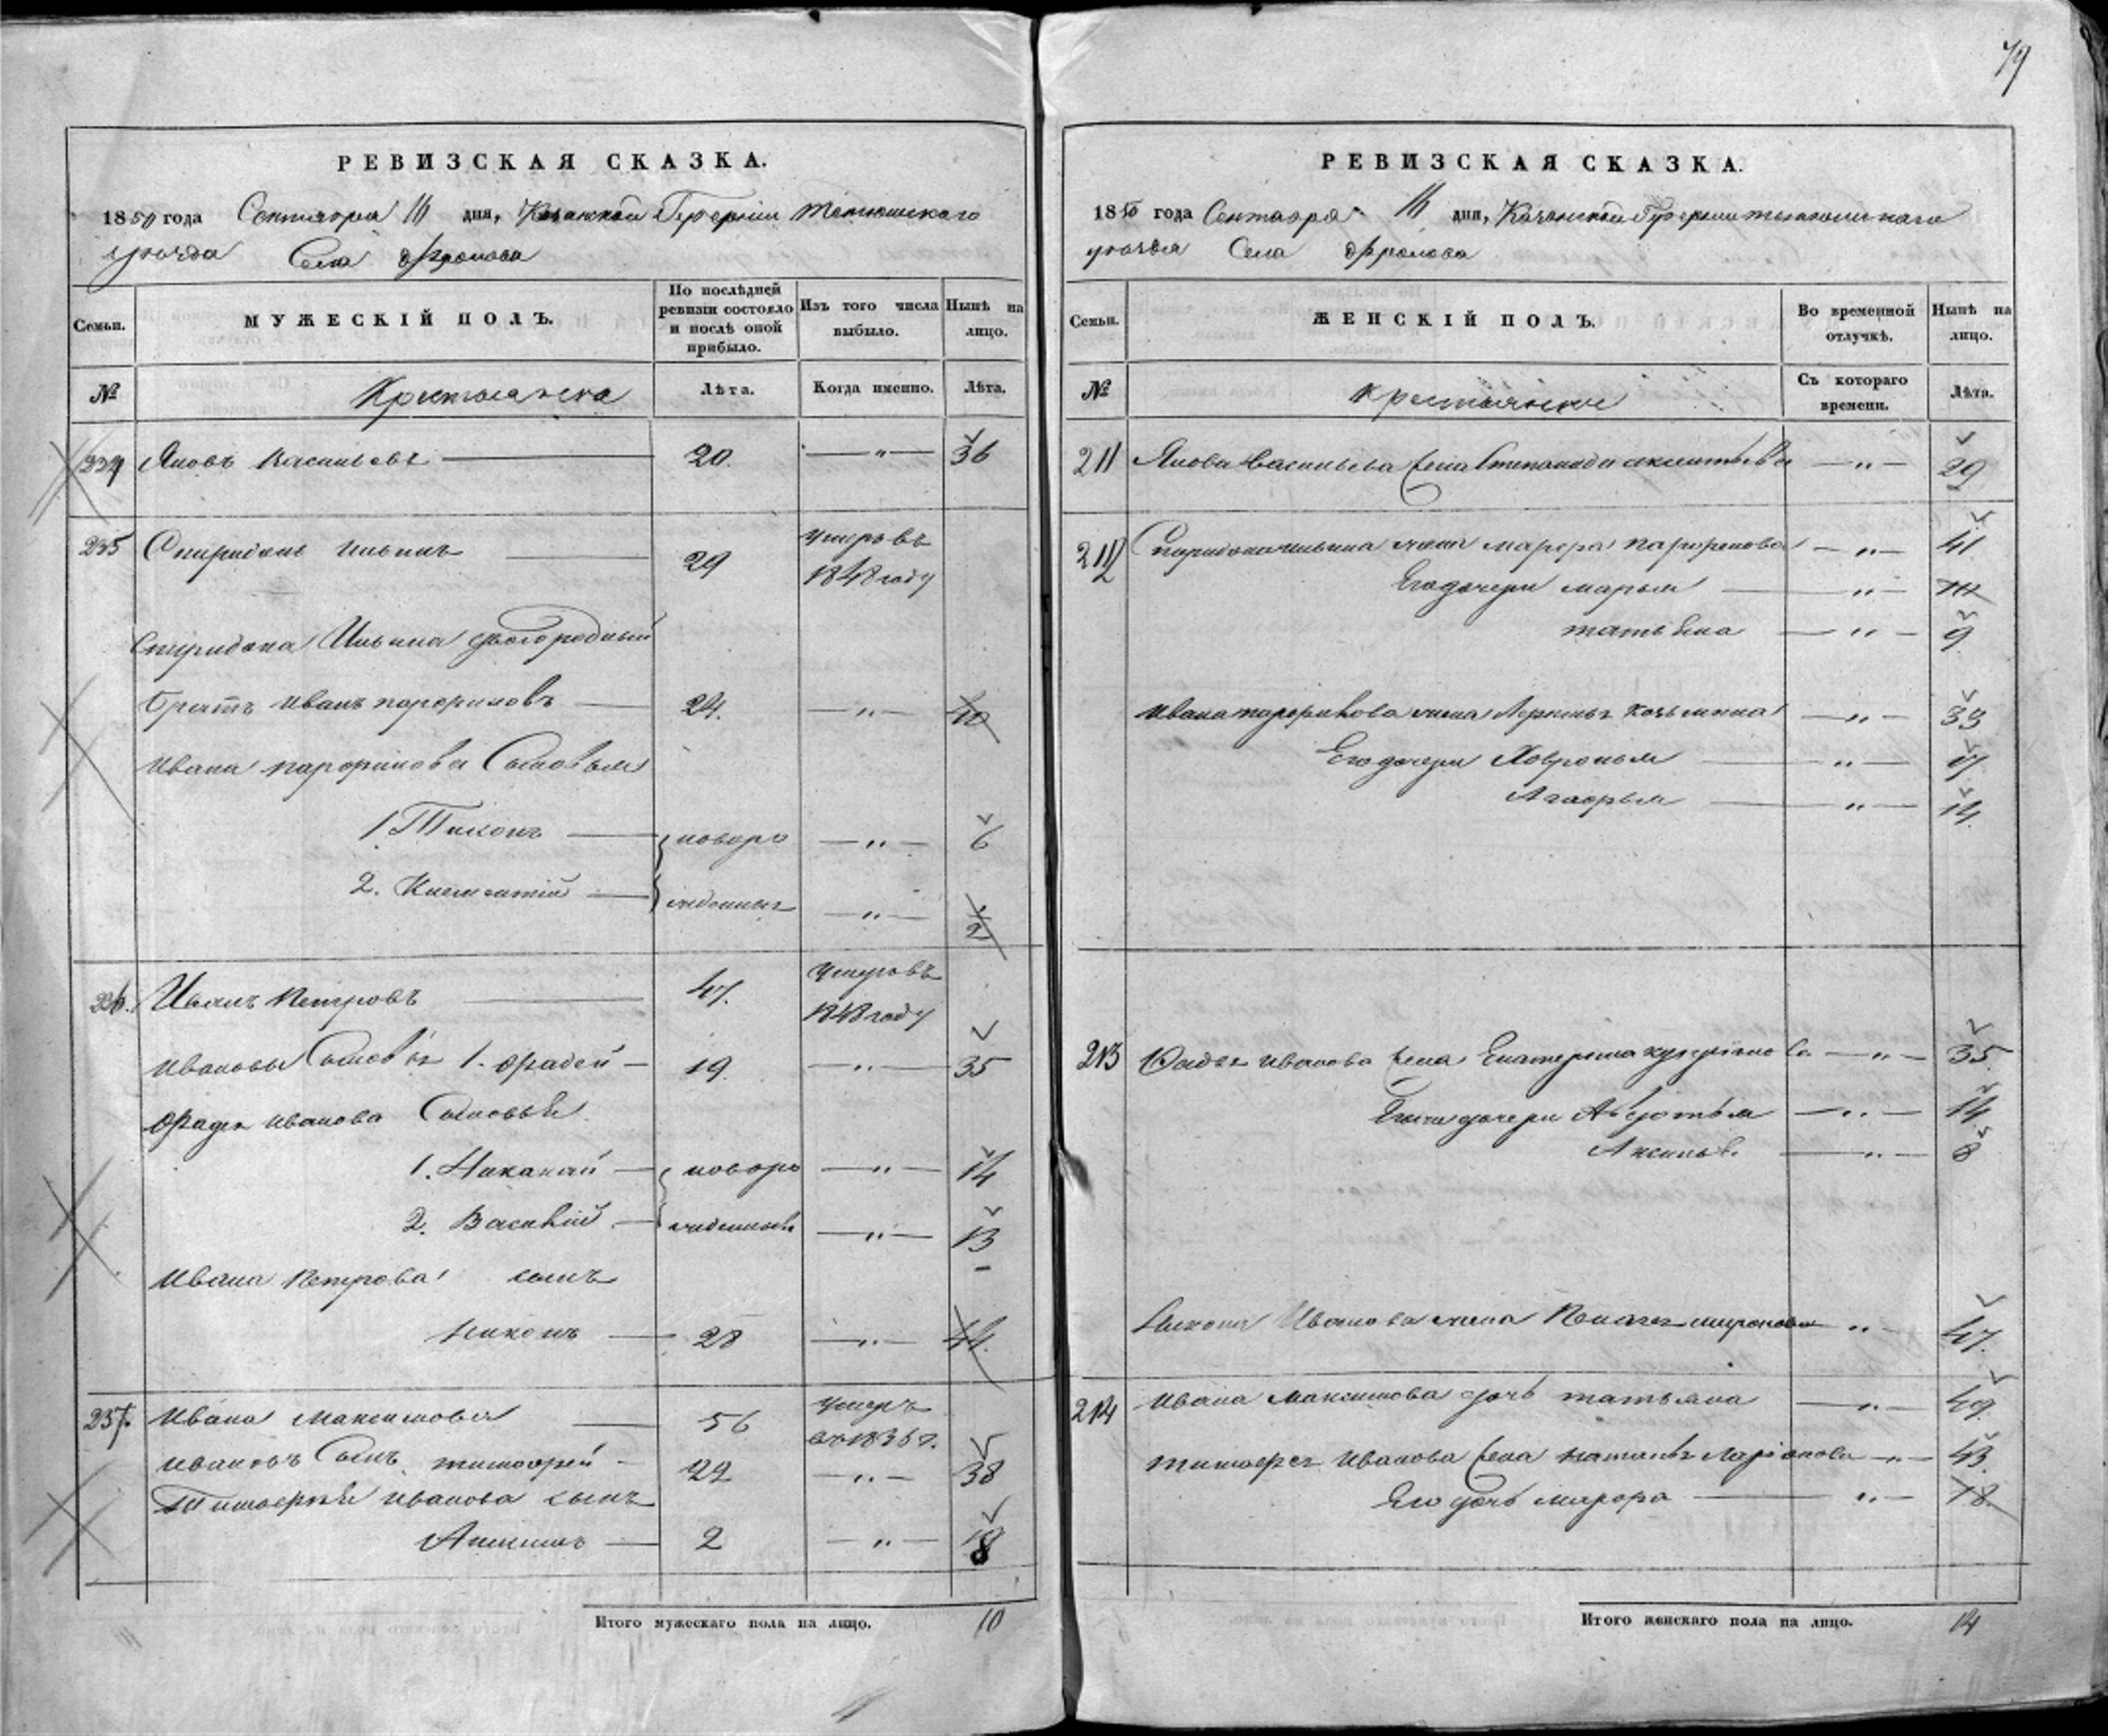 79
РЕВИЗСКАЯ СКАЗКА.
1850 года Сентября 16 дня, Казанской Губернии Тетюшскаго
уезда Села Фролова
Семьи. МУЖЕСКІЙ ПОЛЪ. По послѣдней ревизіи состояло и послѣ оной прибыло. Изъ того числа выбыло. Нынѣ на лицо.
№ Крестьянска Лѣта. Когда именно. Лѣта.
234 Яковъ Васильевъ 20. — " — 36
235 Спиридонъ Ильинъ 29 умеръ въ 1848 году
Спиридона Ильина двоюродный
братъ Иванъ парфиновъ 24. — " — 40
Ивана парфинова Сыновья
1. Тихонъ новоро — " — 6
2. Климентий жденныя — " — 2
236. Иванъ Петровъ 47. умеръ въ 1848 году
Ивановы Сыновья 1. Фадей — 19. — " — 35
Фадея Иванова Сыновья
1. новоро — " — 14
2. Василий жденныя — " — 13
Ивана Петрова сынъ
Никонъ 28 — " — 44.
237. Ивана Максимова 56 умеръ въ 1836 г.
Ивановъ Сынъ тимофей — 22 — " — 38
Тимофея Иванова сынъ
2 — " — 18
Итого мужескаго пола на лицо. 10
РЕВИЗСКАЯ СКАЗКА.
1850 года Сентября 16 дня, Казанской Губернии тетюшскаго
уезда Села Фролова
Семьи. ЖЕНСКІЙ ПОЛЪ. Во временной отлучкѣ. Нынѣ на лицо.
№ Крестьянска Съ котораго времени. Лѣта.
211 Якова Васильева жена Степанида — " — 29
212 Спиридона Ильина жена марфа парфенова — " — 41
Его дочери марья — " —
татьяна — " — 9
Ивана парфинова жена козьмина — " — 39
Его дочери Хавронья — " — 17
Агафья — " — 14.
213 Фадея Иванова жена Екатерина — " — 35.
дочери Авдотья — " — 14
Аксинья — " — 8
Никона Иванова жена Пелагея миронова " — 47.
214 Ивана Максимова дочь татьяна — " — 49.
тимофея Иванова жена наталья Ларіонова — " — 43.
Его дочь марфа — " — 18.
Итого женскаго пола на лицо. 14